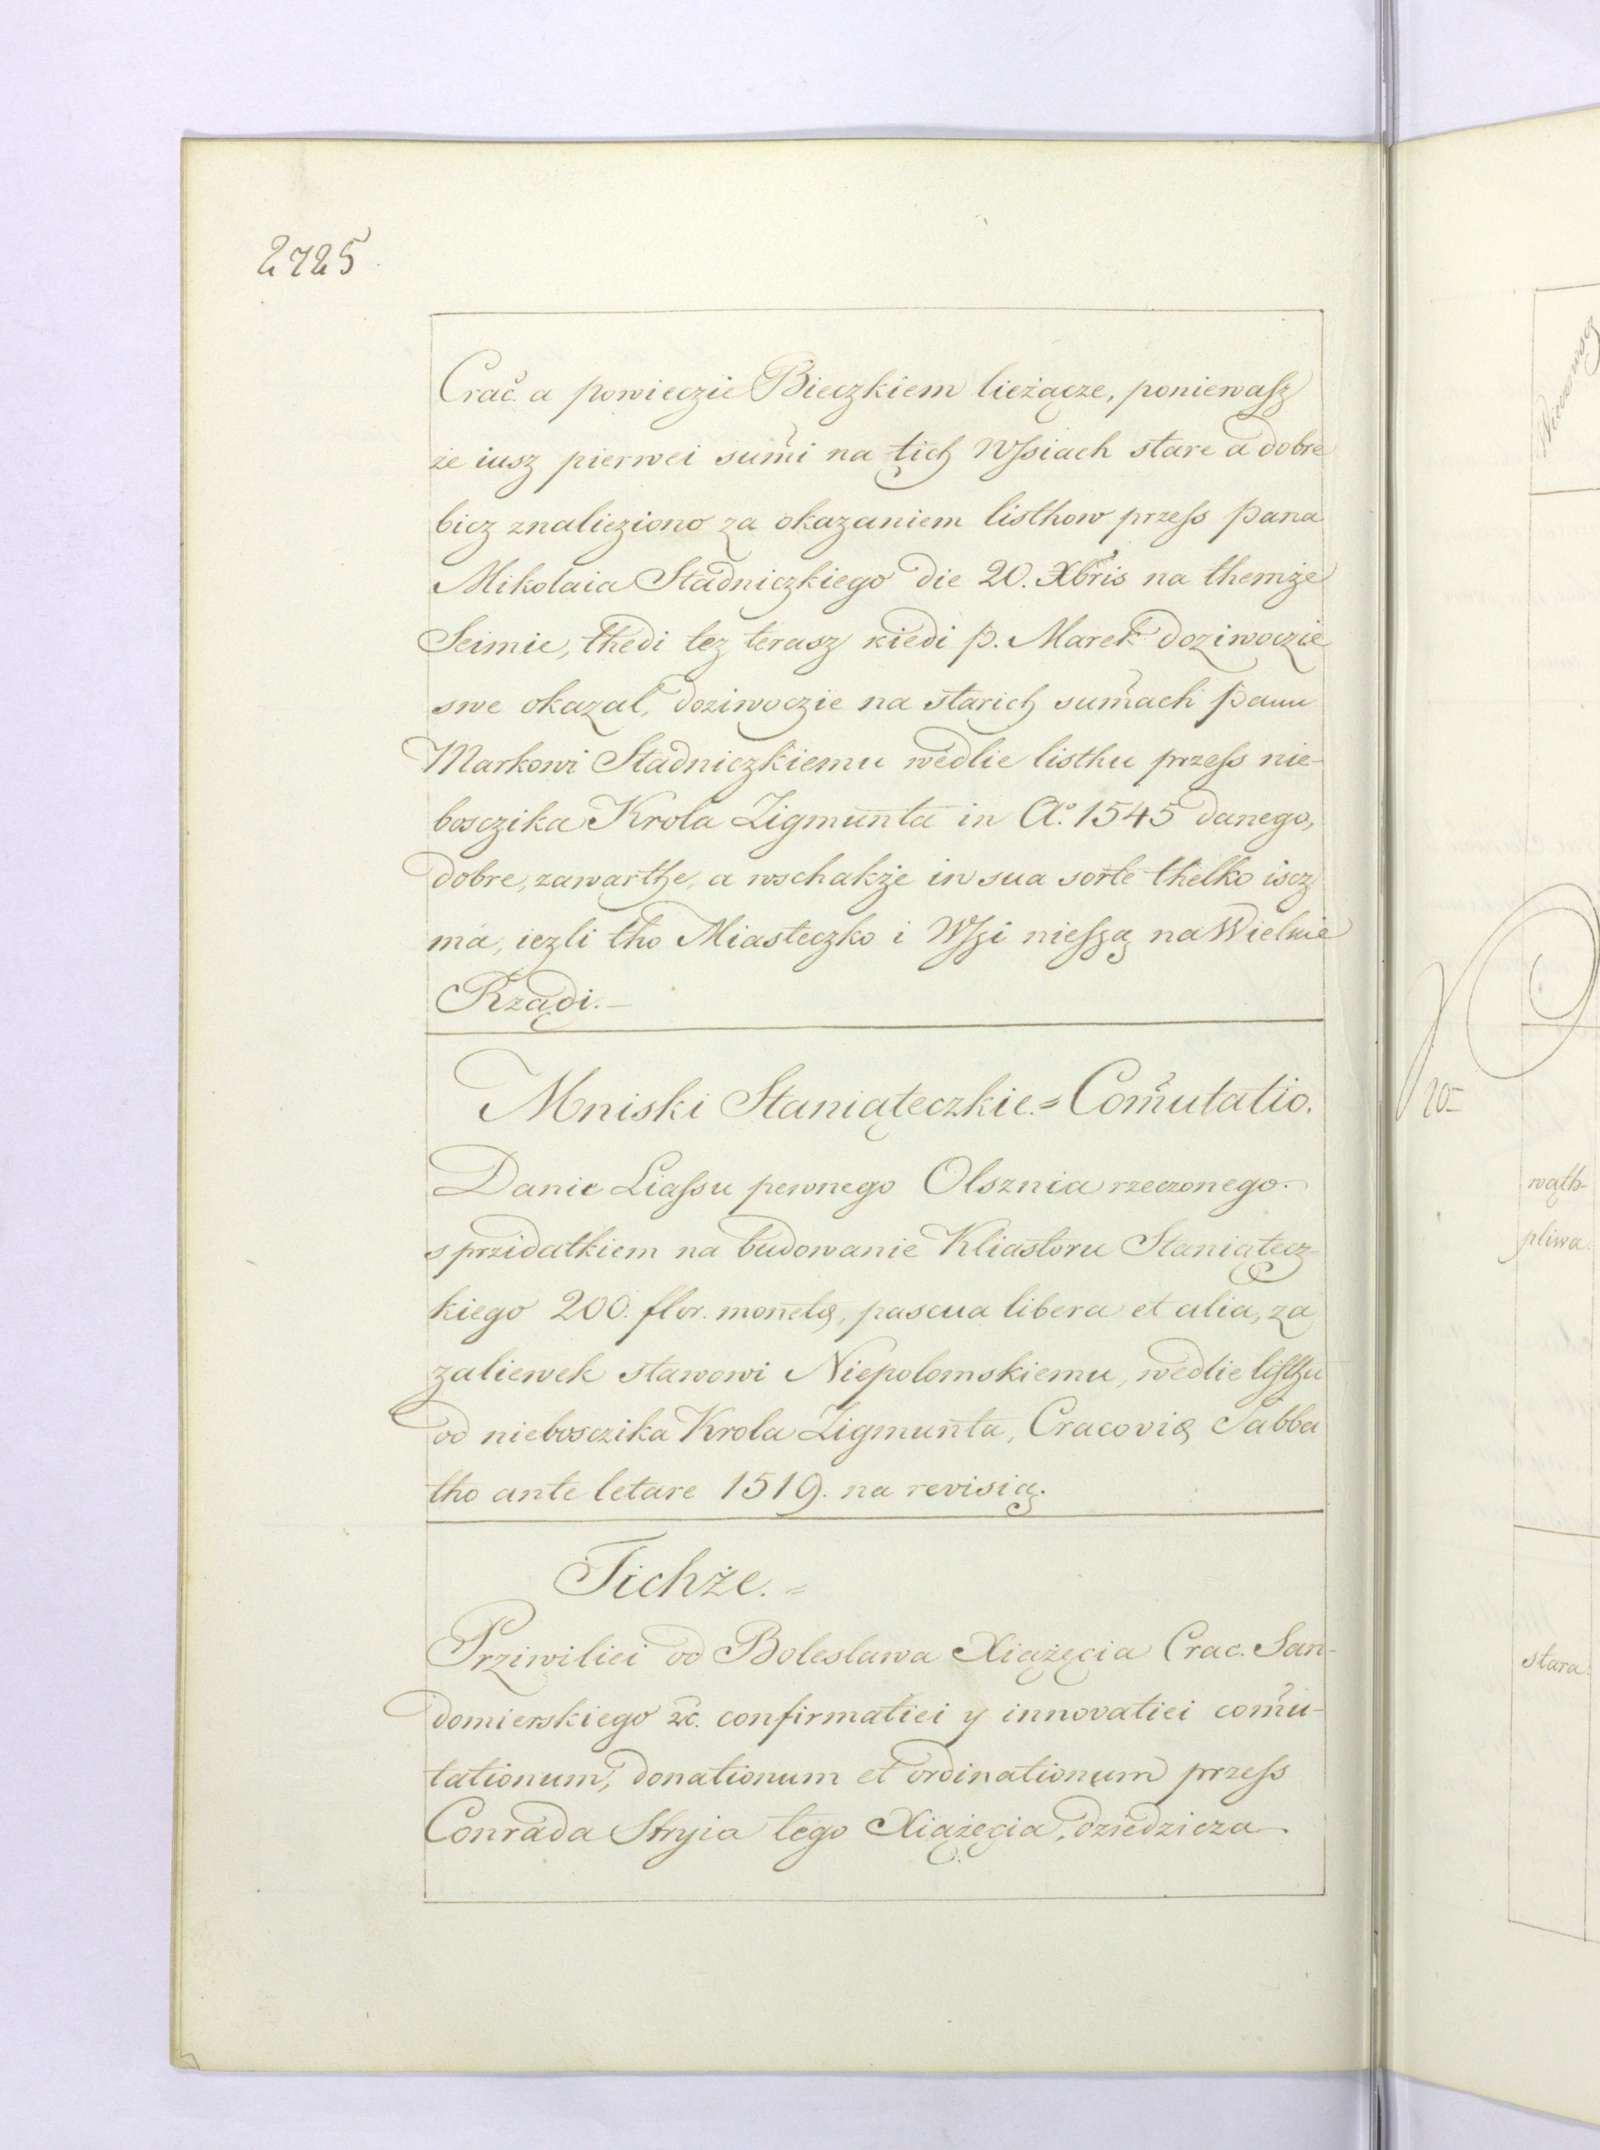 2725
Crac̃. a powieczie Bieczkiem lieżącze, poniewasz
że iusz pierwei sum̃i na tich Wssiach stare a dobre
bicz znalieziono za okazaniem listhow przess pana
Mikolaia Stadniczkiego die 20. Xbris na themże
Seimie, thedi tez terasz kiedi p. Marek doziwoczie
swe okazal, doziwoczie na starich sum̃ach panu
Markowi Stadniczkiemu wedlie listhu przess nie-
bosczika Krola Zigmunta in Aº. 1545 danego,
dobre, zawarthe, a wschakże in sua sorte thelko iscz
ma, iezli tho Miasteczko i Wssi niessą na Wielnie
Rządi.—
Mniski Staniąteczkie.= Com̃utatio.
Danie Liassu pewnego Olsznia rzeczonego.
s przidatkiem na budowanie Kliastoru Staniątecz-
kiego 200. flor. monetę, pascua libera et alia, za
zaliewek stawowi Niepolomskiemu, wedlie
od niebosczika Krola Zigmunta, Cracovię Sabba
tho ante letare 1519. na revisią.
Tichże.=
Prziwiliei od Boleslawa Xiążęcia Crac. San-
domierskiego &c. confirmatiei y innovatiei com̃u-
tationum, donationum et ordinationum przess
Conrada Stryia tego Xiążęcia, dziedzicza
no-
wąth-
pliwa.
stara.